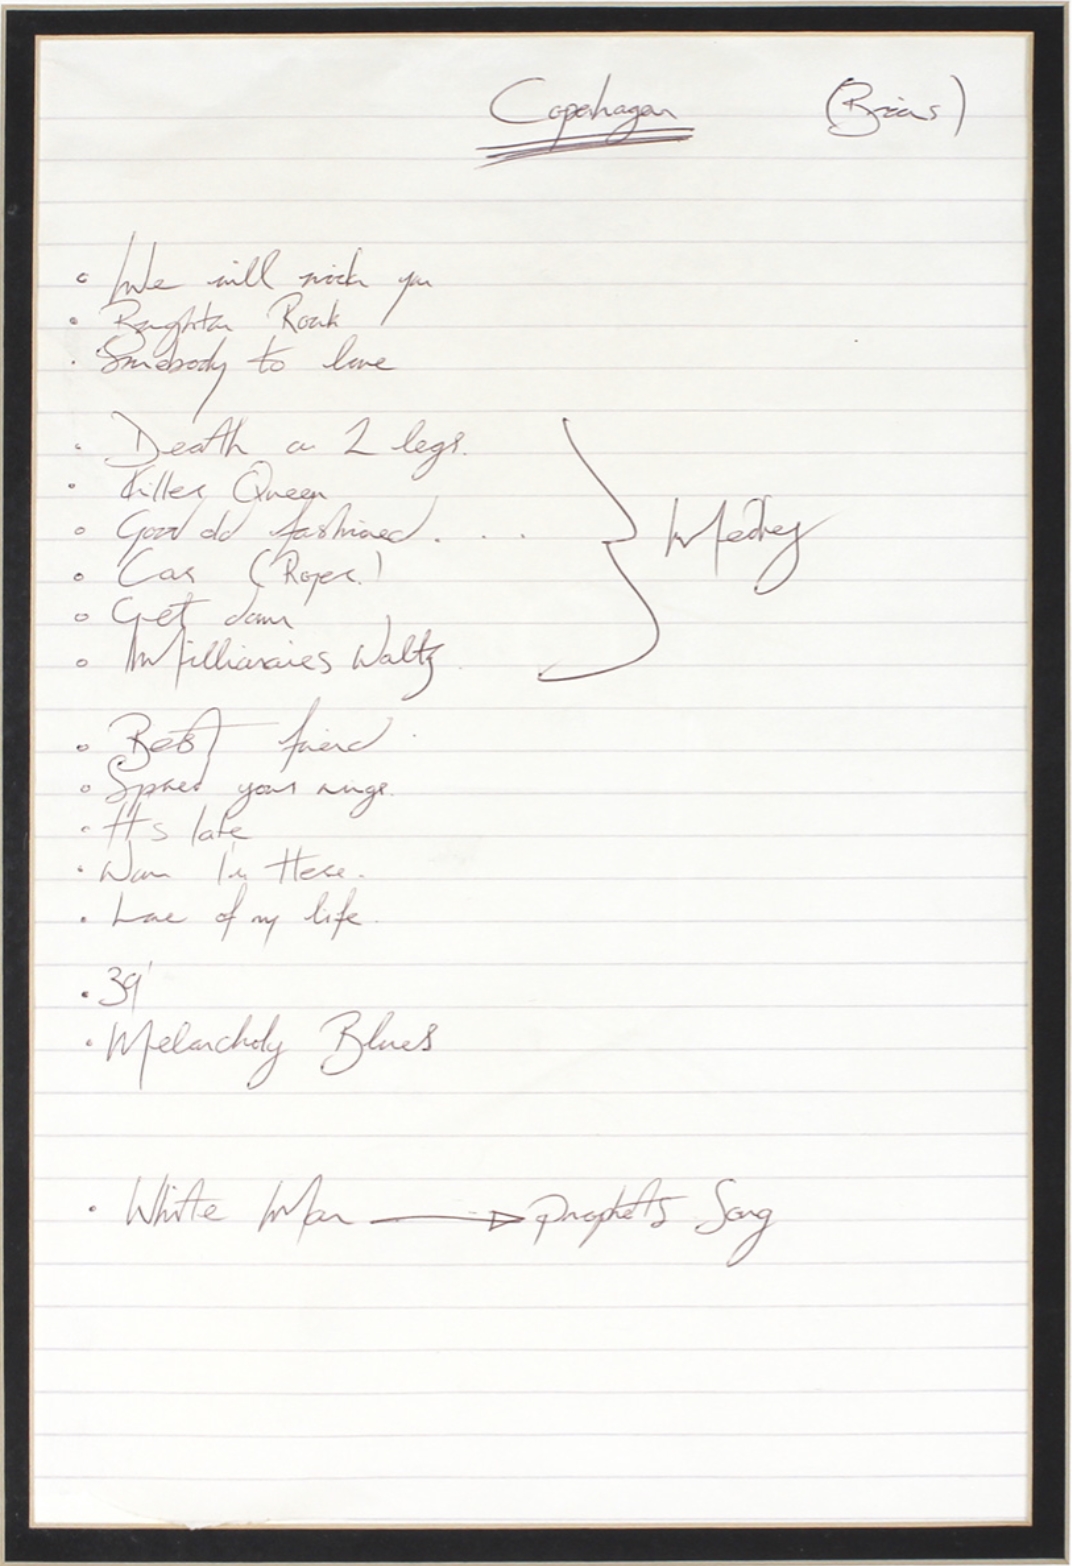 Copenhagen (Brians)
• We will rock you
• Brighton Rock
• Somebody to love
• Death on 2 legs.
• Killer Queen
• Good old fashioned . . .
Medley
• Car (Roger)
• Get down
• Millionaires Waltz
• Best friend
• Spread your wings.
• It's late
• Now I'm Here.
• Love of my life.
• 39'
• Melancholy Blues
• White Man → Prophets Song